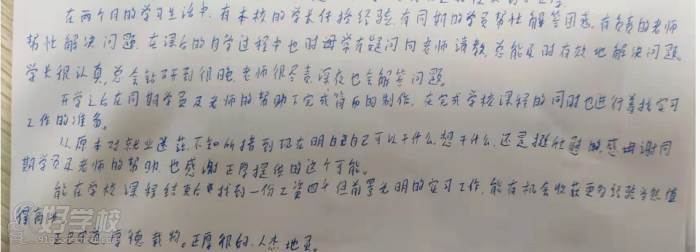 在两个月的学习生活中,有本校的学长传授经验,有同期的学员帮忙解答困惑,有负责的老师
帮忙解决问题,在课后的自学过程中也时每学有疑问向老师请教,总能及时有效地解决问题,
学长很认真,总会钻研到很晚,老师很尽责,深夜也会解答问题。
开学之后在同期学员及老师的帮助下完成简历的制作,在完成学校课程的同时也进行着找实习
工作的准备。
从原本对就业迷茫,不知所措到现在明白自己可以干什么,想干什么,还是挺的感谢同
期学员及老师的帮助,也感谢正厚提供的这个可能。
能在学校课程结束后找到一份工资四千但前景光明的实习工作,能有机会收获更多经验当然值
得高兴
正厚德载物,正厚很的,人杰地灵。
好学校